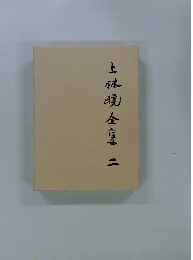 上林暁全集 二